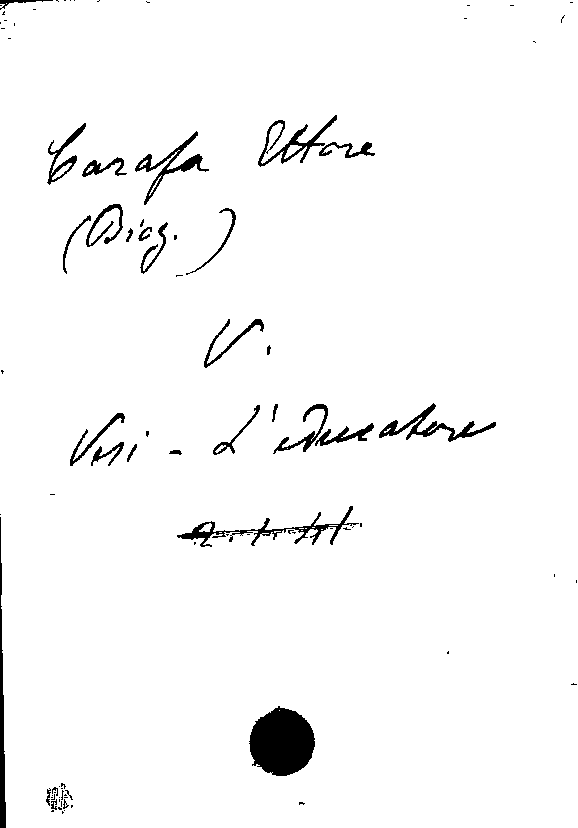 Carafa Ettore
(Biog.)
V.
Vesi - L'educatore